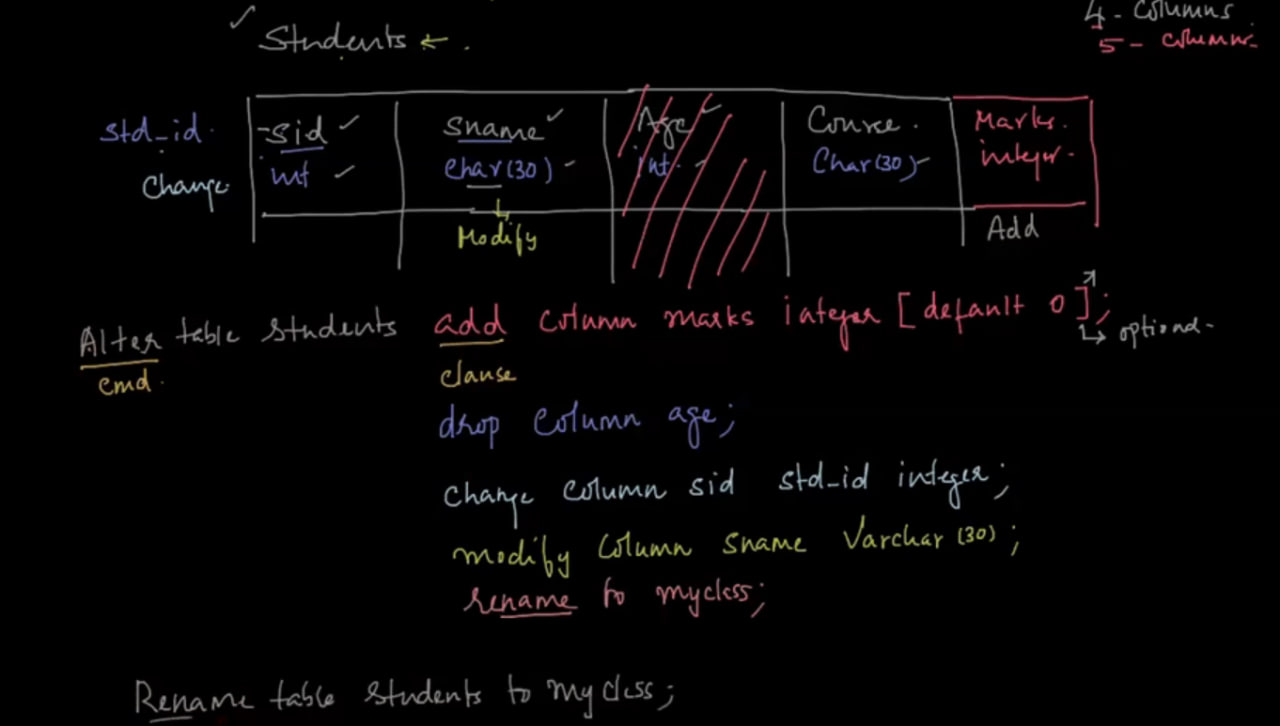 4 - Columns
5 - columns.
✓ Students ← .
std_id. -sid ✓ sname ✓ Age ✓ Course. Marks.
Change. int ✓ char(30) - int. - Char(30) - integer.
Modify Add
Alter table students add column marks integer [default 0];
cmd. ↳ optional.
clause
drop column age;
change column sid std_id integer;
modify column sname Varchar (30) ;
rename to myclass;
Rename table students to myclass;